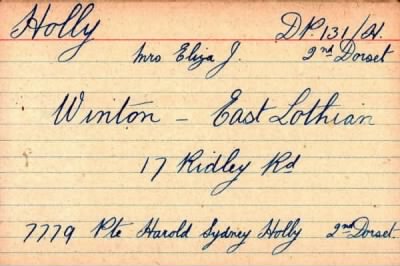 Holly DP. 131/H.
Mrs Eliza J. 2nd Dorset
Winton - East Lothian
17 Ridley Rd
7779 Pte Harold Sydney Holly 2nd Dorset.